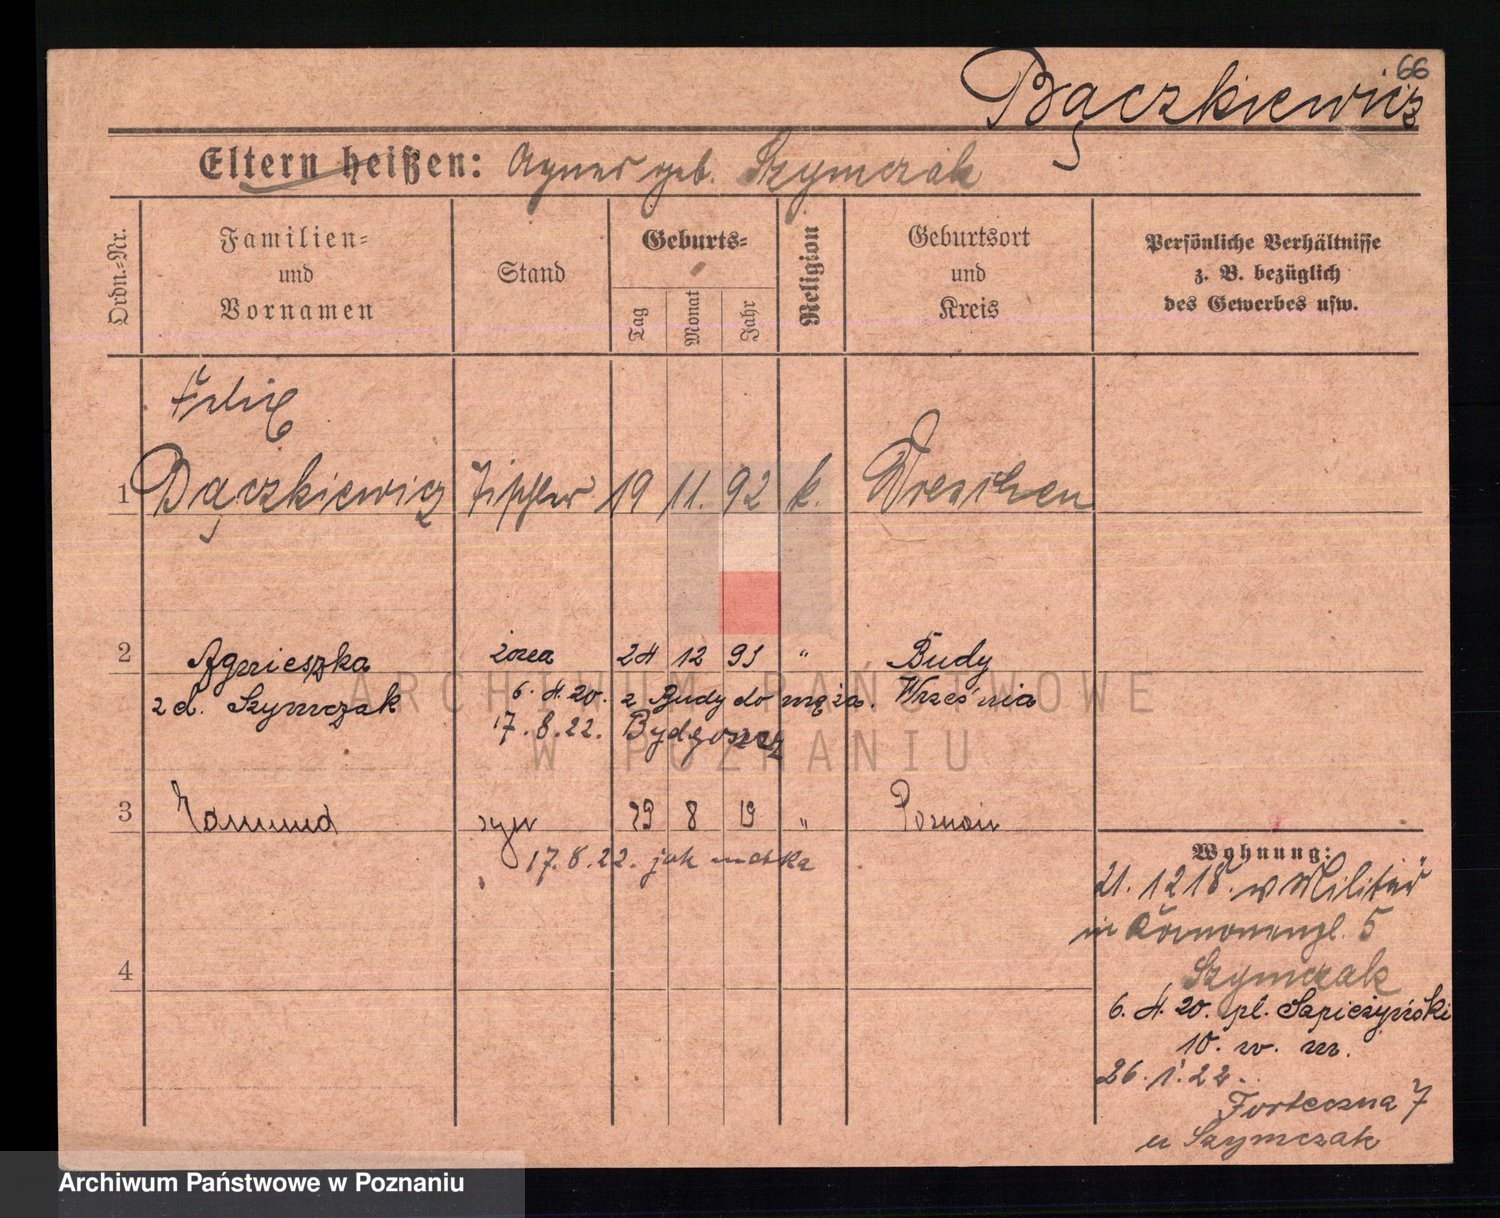 66
Bączkiewicz
Eltern heißen: Agnes geb. Szymczak
Ordn.-Nr.
Familien-
und
Vornamen
Stand
Geburts-
Tag
Monat
Jahr
Religion
Geburtsort
und
Kreis
Persönliche Verhältnisse
z. B. bezüglich
des Gewerbes usw.
Felix
1 Bączkiewicz Tischler 19 11. 92 k. Wreschen
2 Agnieszka żona 24 12 93 " Budy
z d. Szymczak 6. 4. 20. z Budy do męża. Września
17. 8. 22. Bydgoszcz
3 Edmund syn 29 8 19 " Poznań
17. 8. 22. jak matka
4
Wohnung:
21. 12 18. v Militär
in 5
Szymczak
6. 4. 20. pl. Sapieżyński
10. w. m.
26. 1. 22.
Forteczna 7
u Szymczak
ARCHIWUM PAŃSTWOWE
W POZNANIU
Archiwum Państwowe w Poznaniu